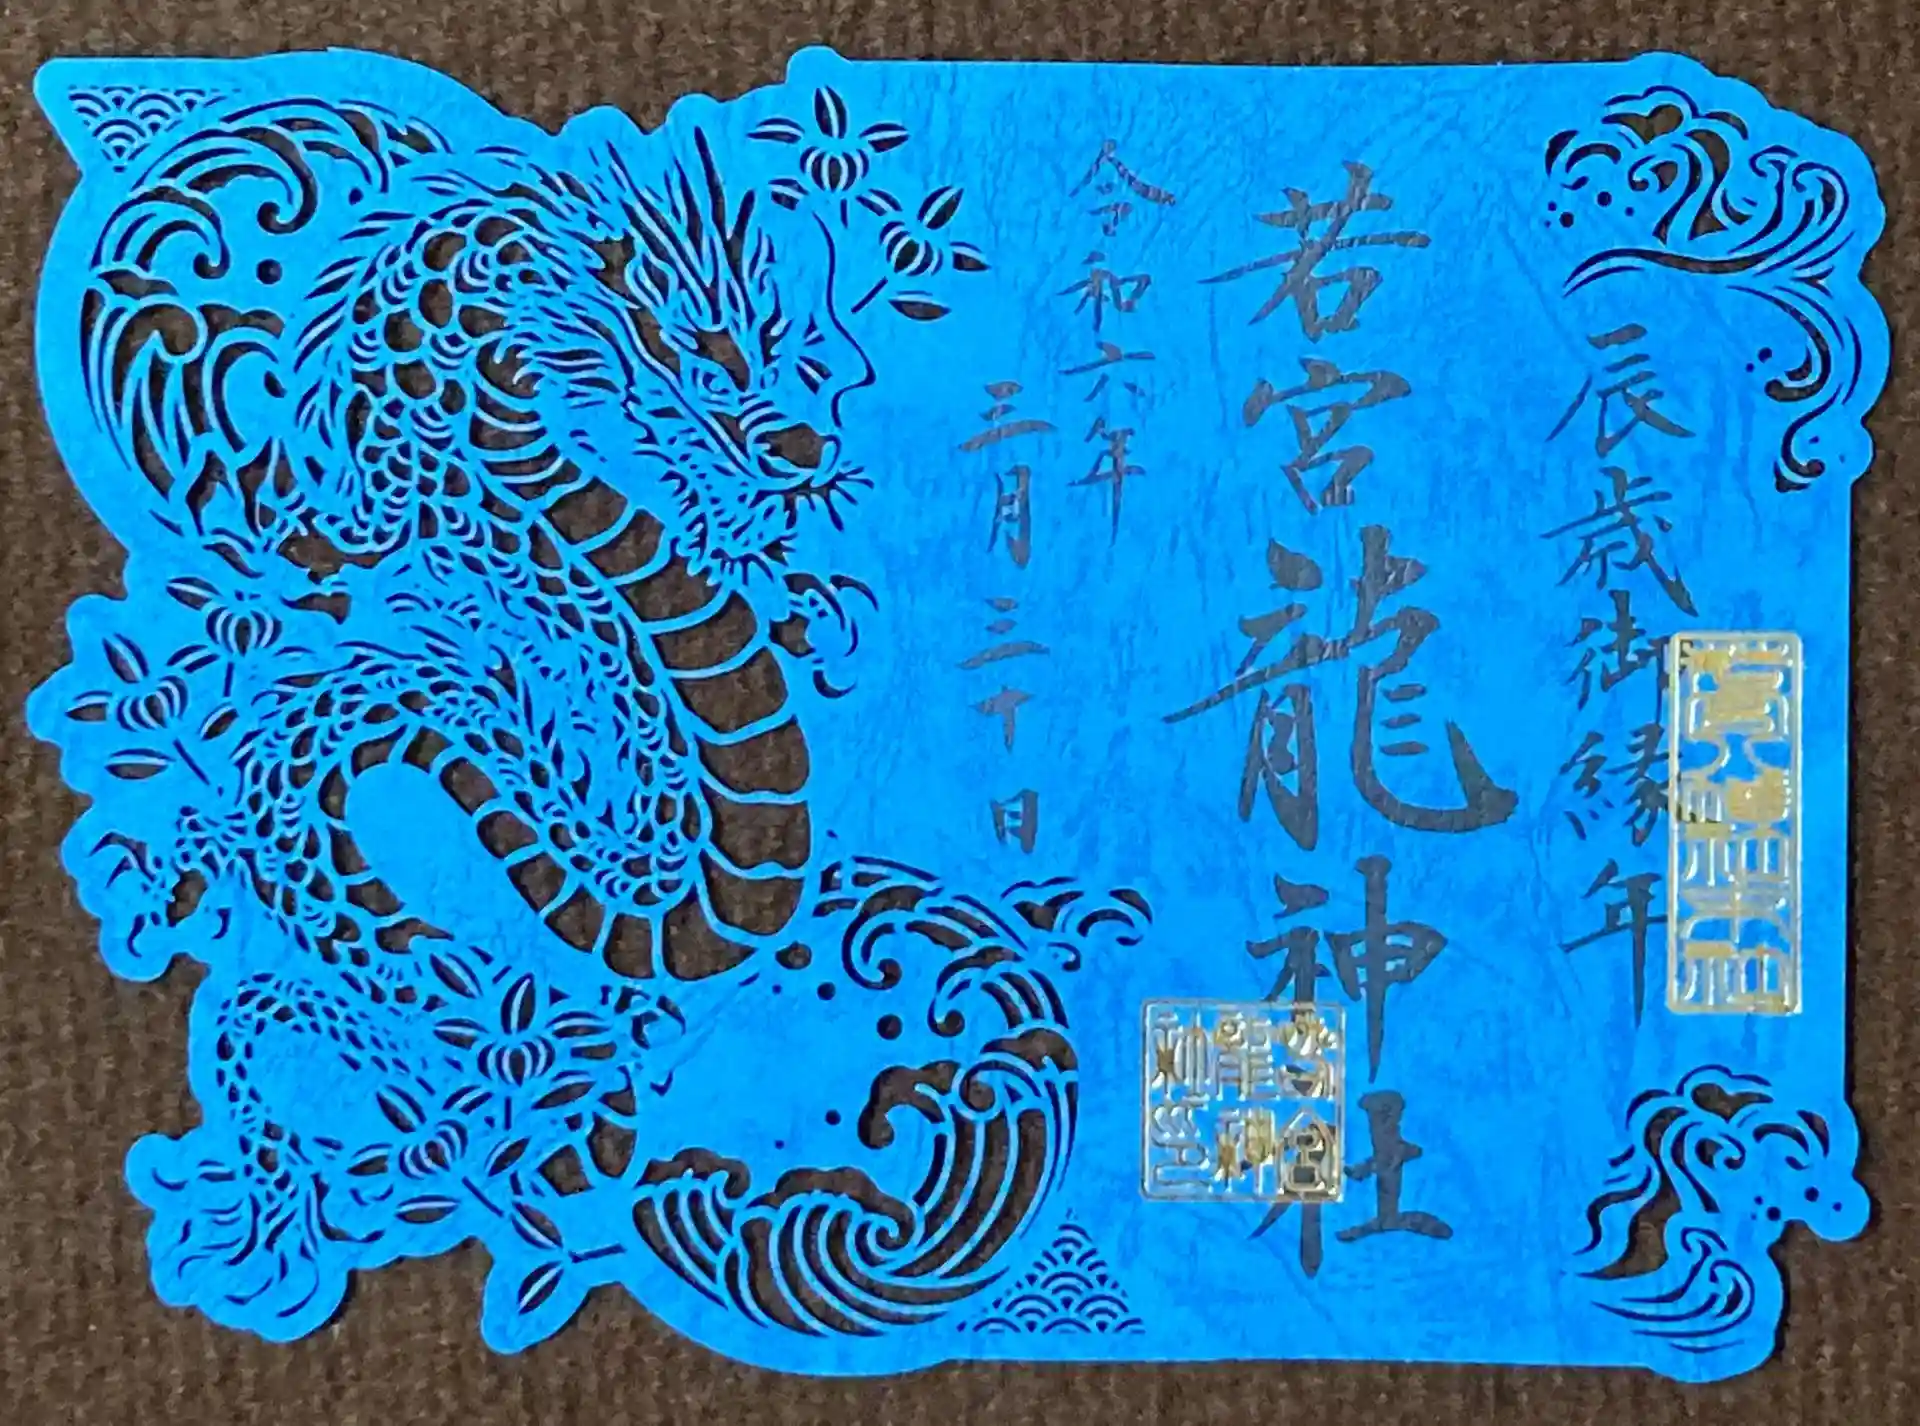 辰歳御縁年
若宮龍神社
令和六年
三月三十日
若宮
龍神